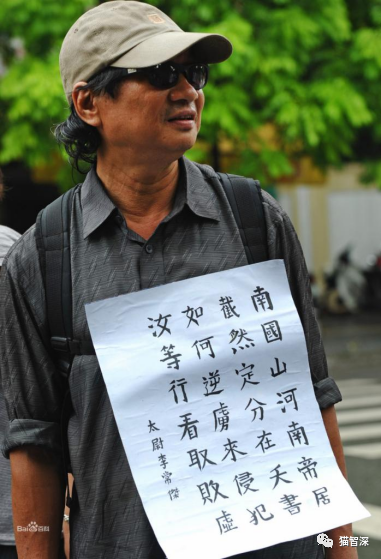 南國山河南帝居
截然定分在天書
如何逆虜來侵犯
汝等行看取敗虛
太尉李常傑
Baidu百科
猫智深